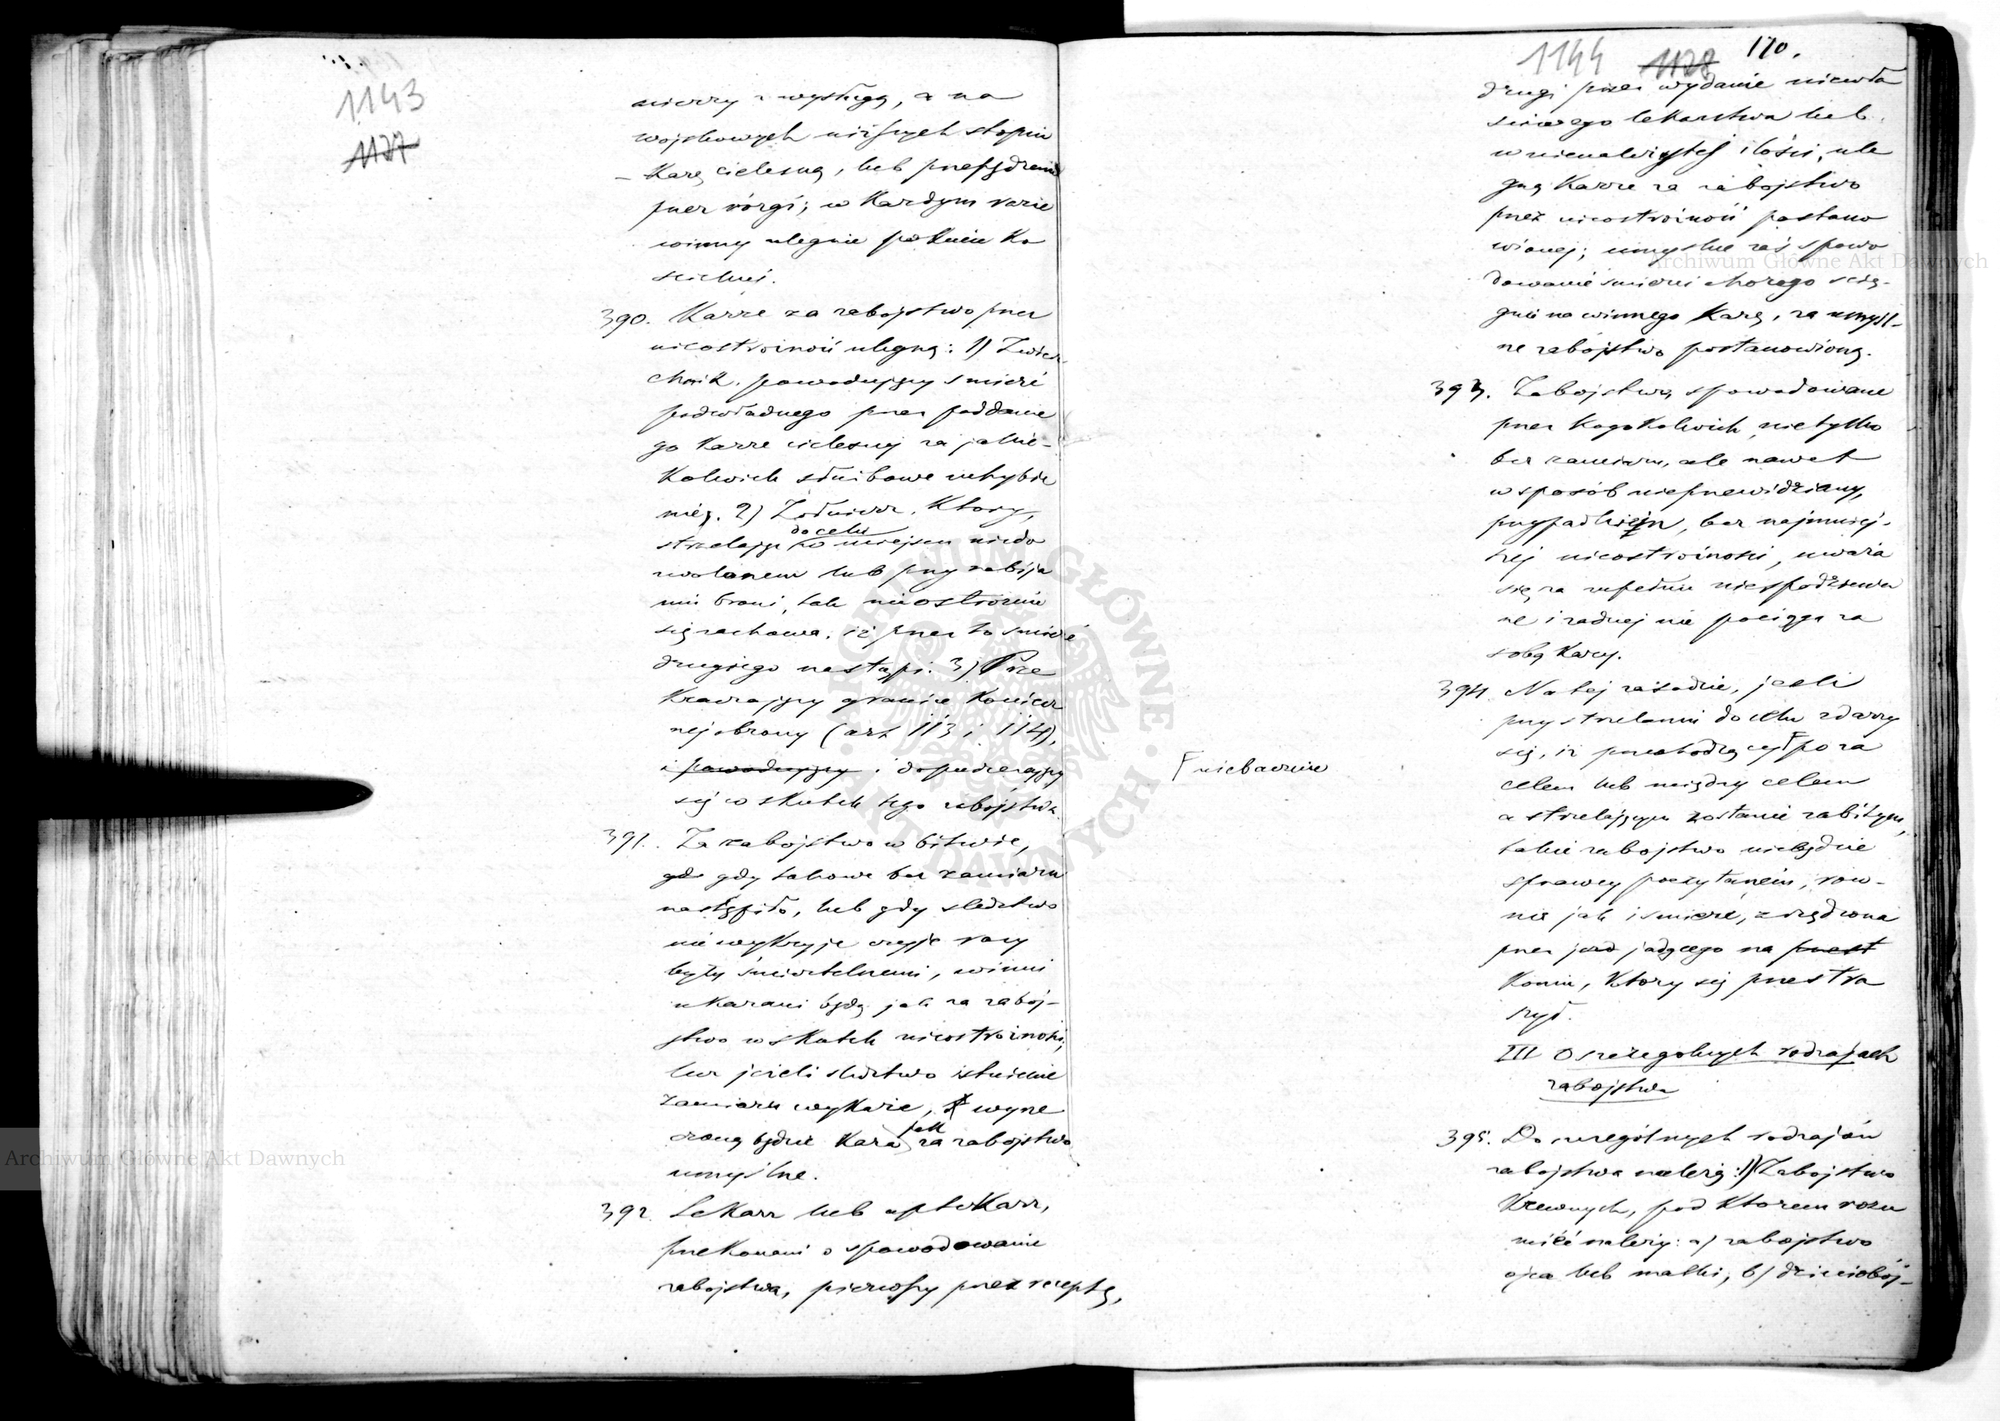 1143
1127
mierzy i wysługę, a na
wojskowych niższych stopni
– Karę cielesną, lub przepędzenie
przez rózgi; w Każdym razie
winny ulegnie pokucie Ko
ścielnéj.
390. Karze za zabojstwo przez
nieostrożność ulegną: 1) Zwierz
chnik, powodujący smierć
podwładnego przez poddanie
go Karze cielesnej za jakie-
Kolwiek służbowe uchybie
nie. 2) Żołnierz, Ktory,
do celu
strzelając w miejscu niedo
zwolonem lub przy nabija
niu broni, tak nieostrożnie
się zachowa, iż przez to smierć
drugiego nastąpi. 3) Prze
Kraczający granice Koniecz
nej obrony (art 113 i 114),
i powodujący i dopuszczający
się w skutek tego zabojstwa.
391. Za zabojstwo w bitwie,
gd gdy takowe bez zamiaru
nastąpiło, lub gdy sledztwo
nie wykryje czyje razy
były śmiertelnemi, winni
ukarani będą jak za zabój-
stwo w skutek nieostrożności,
lecz jeżeli sledztwo istnienie
zamiaru wykaże, wymie
rzoną będzie Kara jak za zabojstwo
umyślne.
392. Lekarz lub aptekarz,
przekonani o spowodowanie
zabojstwa, pierwszy przez receptę,
1144 1128 170.
drugi przez wydanie niewła
sciwego lekarstwa lub
w nienależytej ilości, ule
gną Karze za zabojstwo
przez nieostrożność postano
wionej; umyslne zaś spowo
dowanie smierci chorego ścią-
gnie na winnego Karę, za umyśl-
ne zabójstwo postanowioną.
393. Zabojstwo spowodowane
przez Kogokolwiek, nietylko
bez zamiaru, ale nawet
w sposób nieprzewidziany,
przypadkiem, bez najmniej-
szej nieostrożności, uważa
się za zupełnie niespodziewa
ne i żadnej nie pociąga za
sobą Kary.
394. Na tej zasadzie, jeśli
przy strzelaniu do celu zdarzy
się, iż przechodzący Γ poza
Γ niebacznie
celem lub między celem
a strzelającym zostanie zabitym,
takie zabojstwo niebędzie
sprawcy poczytanem, row-
nie jak i smierć, zrządzona
przez jeźd jadącego na przest
Koniu, Ktory się przestra
szył.
III O szczegolnych rodzajach
zabojstwa
395. Do szczególnych rodzajów
zabojstwa należą: 1) Zabojstwo
Krewnych, pod Ktorem rozu
miéć należy: a) zabojstwo
ojca lub matki, b) dzieciobój-
Archiwum Główne Akt Dawnych
Archiwum Główne Akt Dawnych
ARCHIWUM GŁÓWNE AKT DAWNYCH